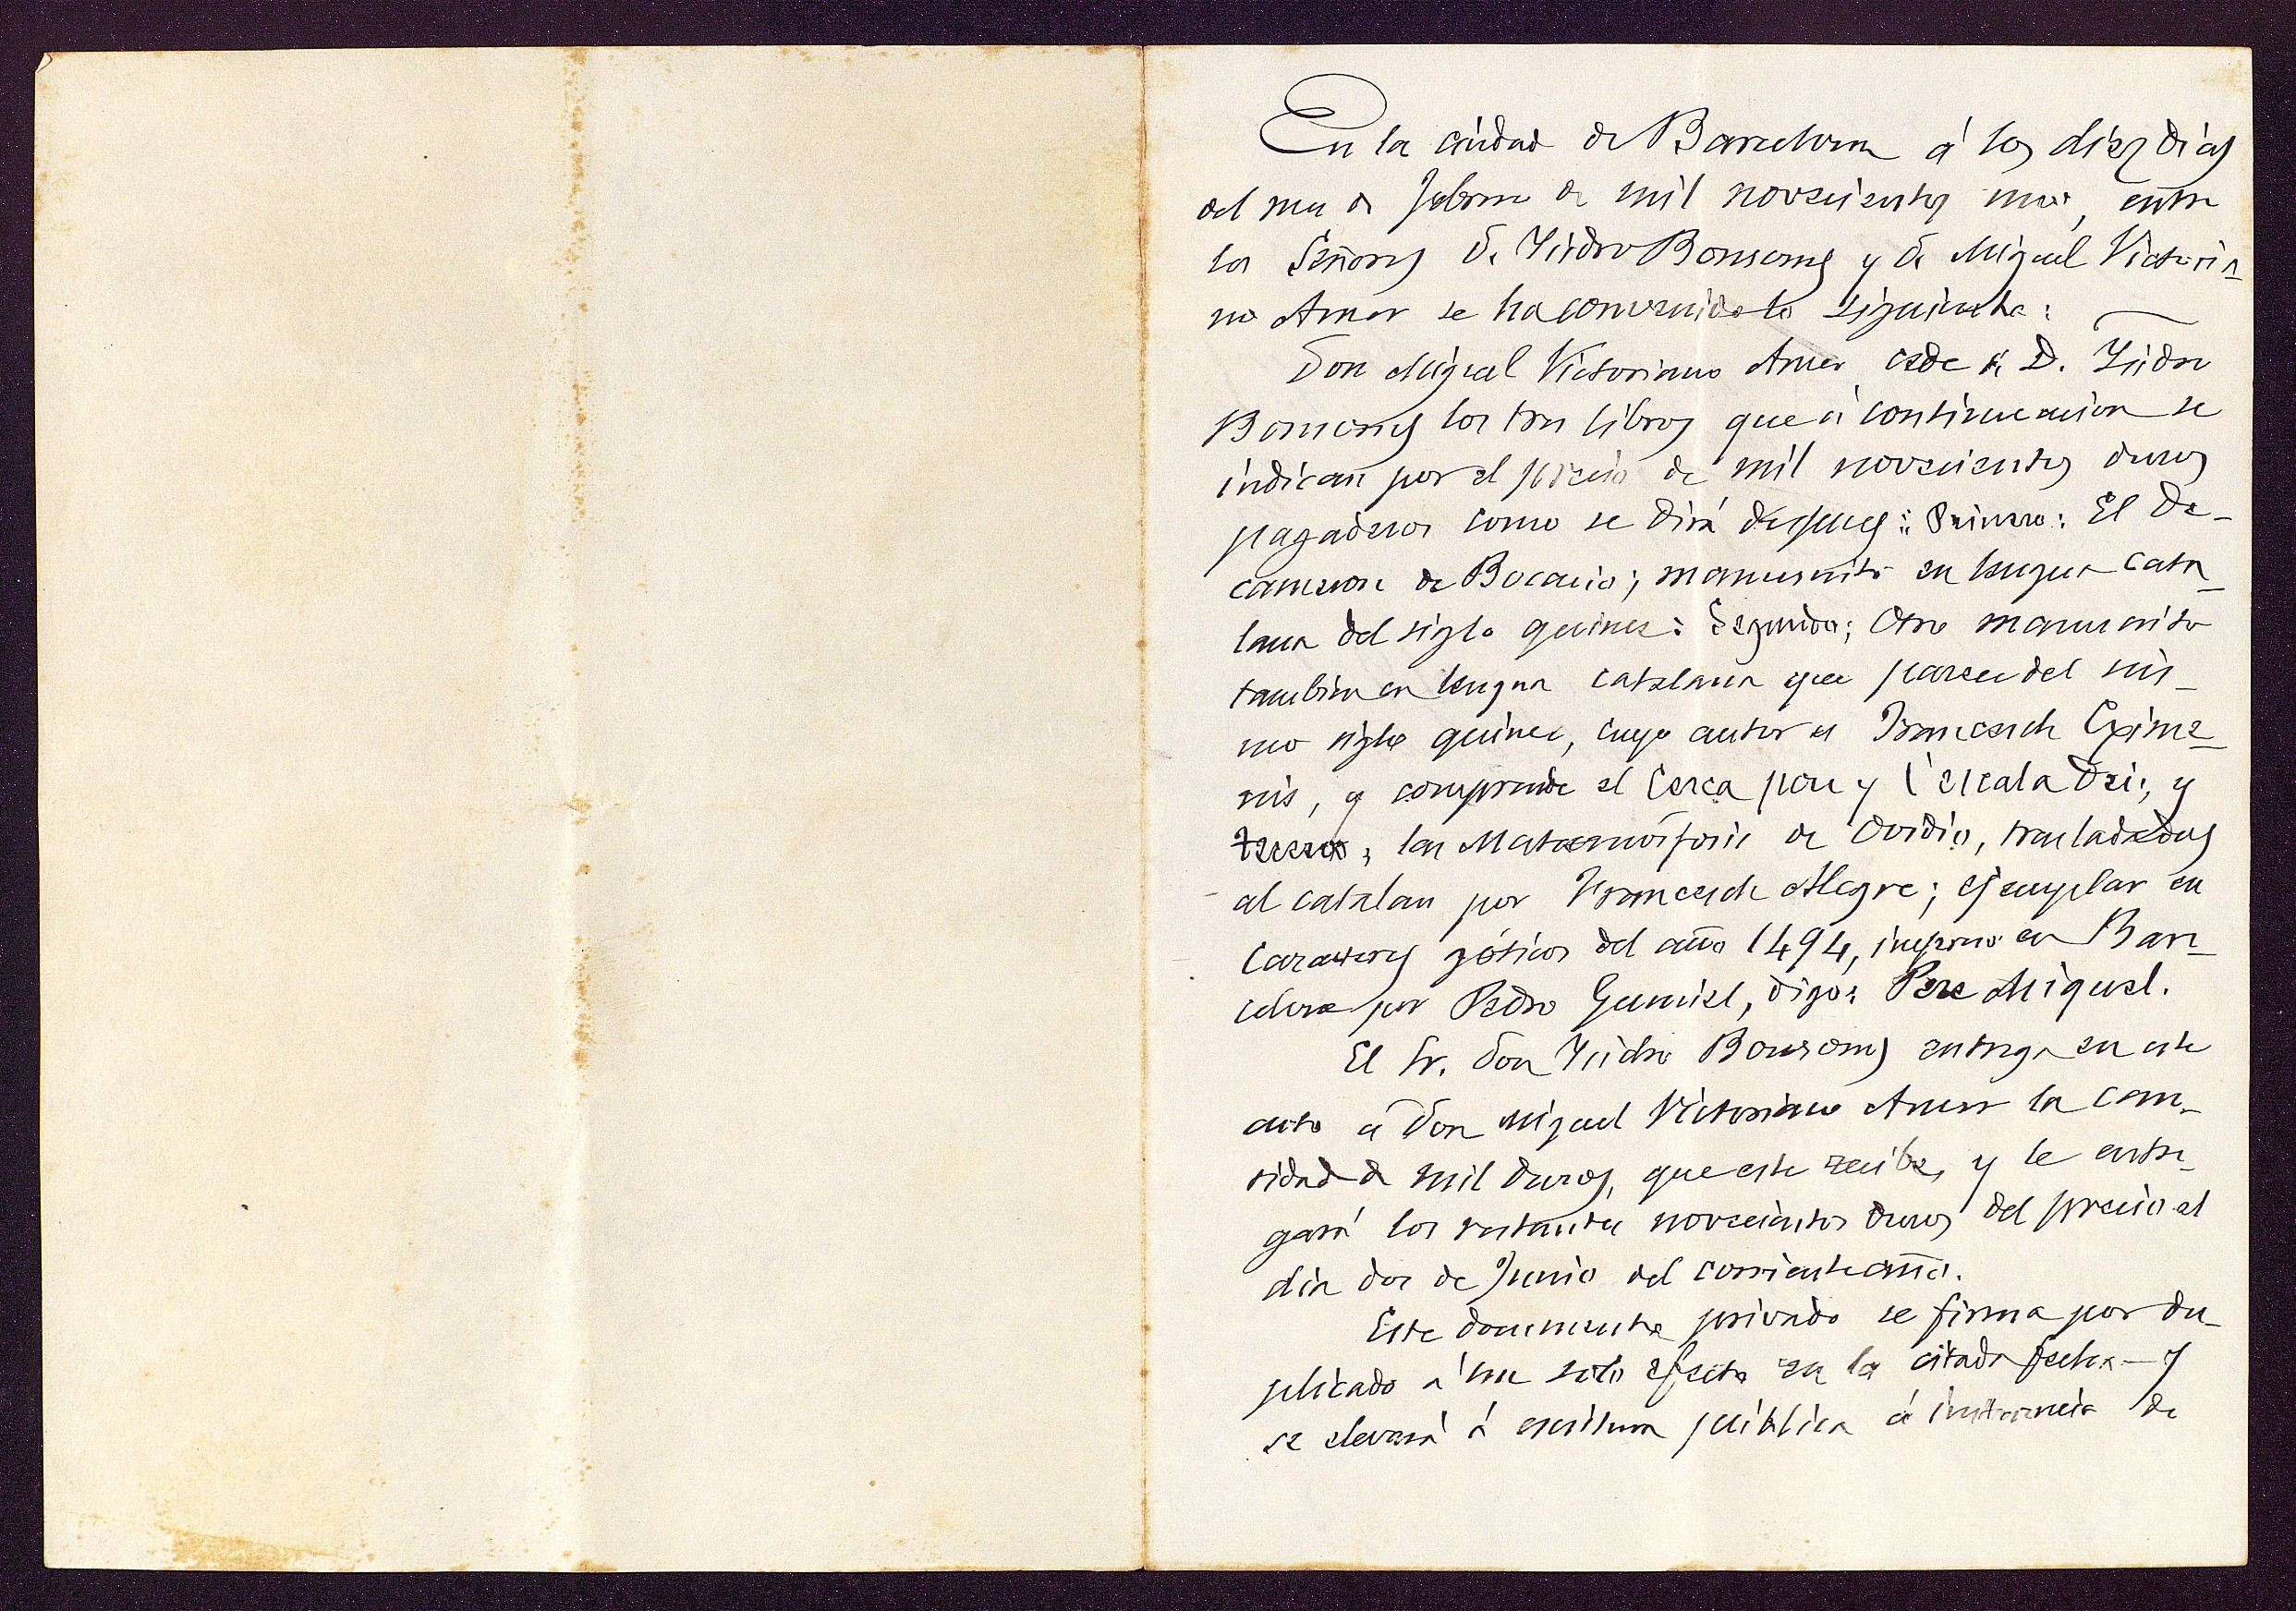 En la ciudad de Barcelona á los diez dias
del mes de febrero de mil novecientos uno, entre
los Señores D. Isidro Bonsoms y D. Miguel Victoria-
no Amer se ha convenido lo siguiente:
Don Miguel Victoriano Amer cede á D. Isidro
Bonsoms los tres libros que á continuacion se
indican por el precio de mil novecientos duros
pagaderos como se dirá despues: Primero: El De-
cameron de Bocacio; manuscrito en lengua cata-
lana del siglo quince: Segundo; Otro manuscrito
tambien en lengua catalana que parece del mis-
mo siglo quince, cuyo autor es Francesch Exime-
nis, y comprende el Cerca pou y l'escala Dei; y
tercero; las Metamórfosis de Ovidio, trasladadas
al catalan por Francesch Alegre; ejemplar en
caracteres góticos del año 1494, impreso en Bar-
celona por Pedro Gumiel, digo: Pere Miquel.
El Sr. Don Isidro Bonsoms entrega en este
acto á Don Miguel Victoriano Amer la can-
tidad de mil duros, que este recibe, y le entre-
gará los restantes novecientos duros del precio el
dia dos de Junio del corriente año.
Este documento privado se firma por du-
plicado á un solo efecto en la citada fecha - y
se elevará á escritura pública á instancia de